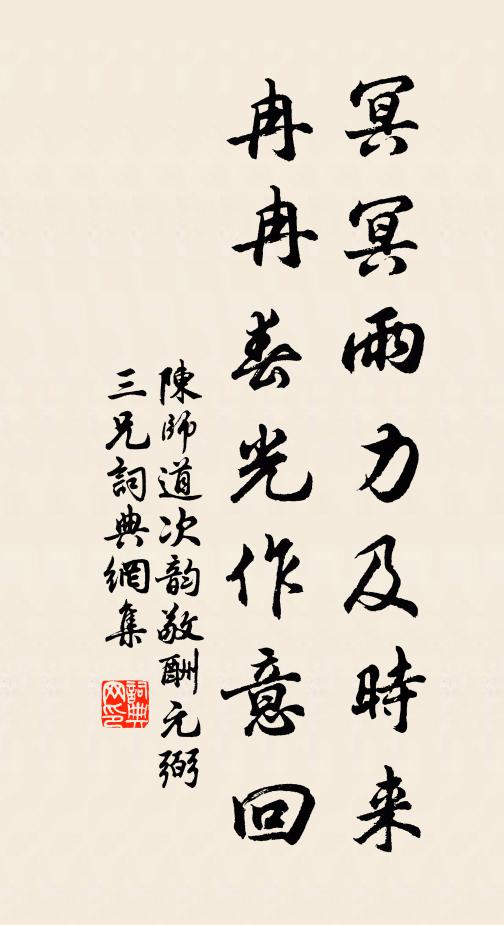 冥冥雨力及時来
冉冉春光作意回
陳師道次韵敬酬元弼
三兄詞典網集
詞典网印